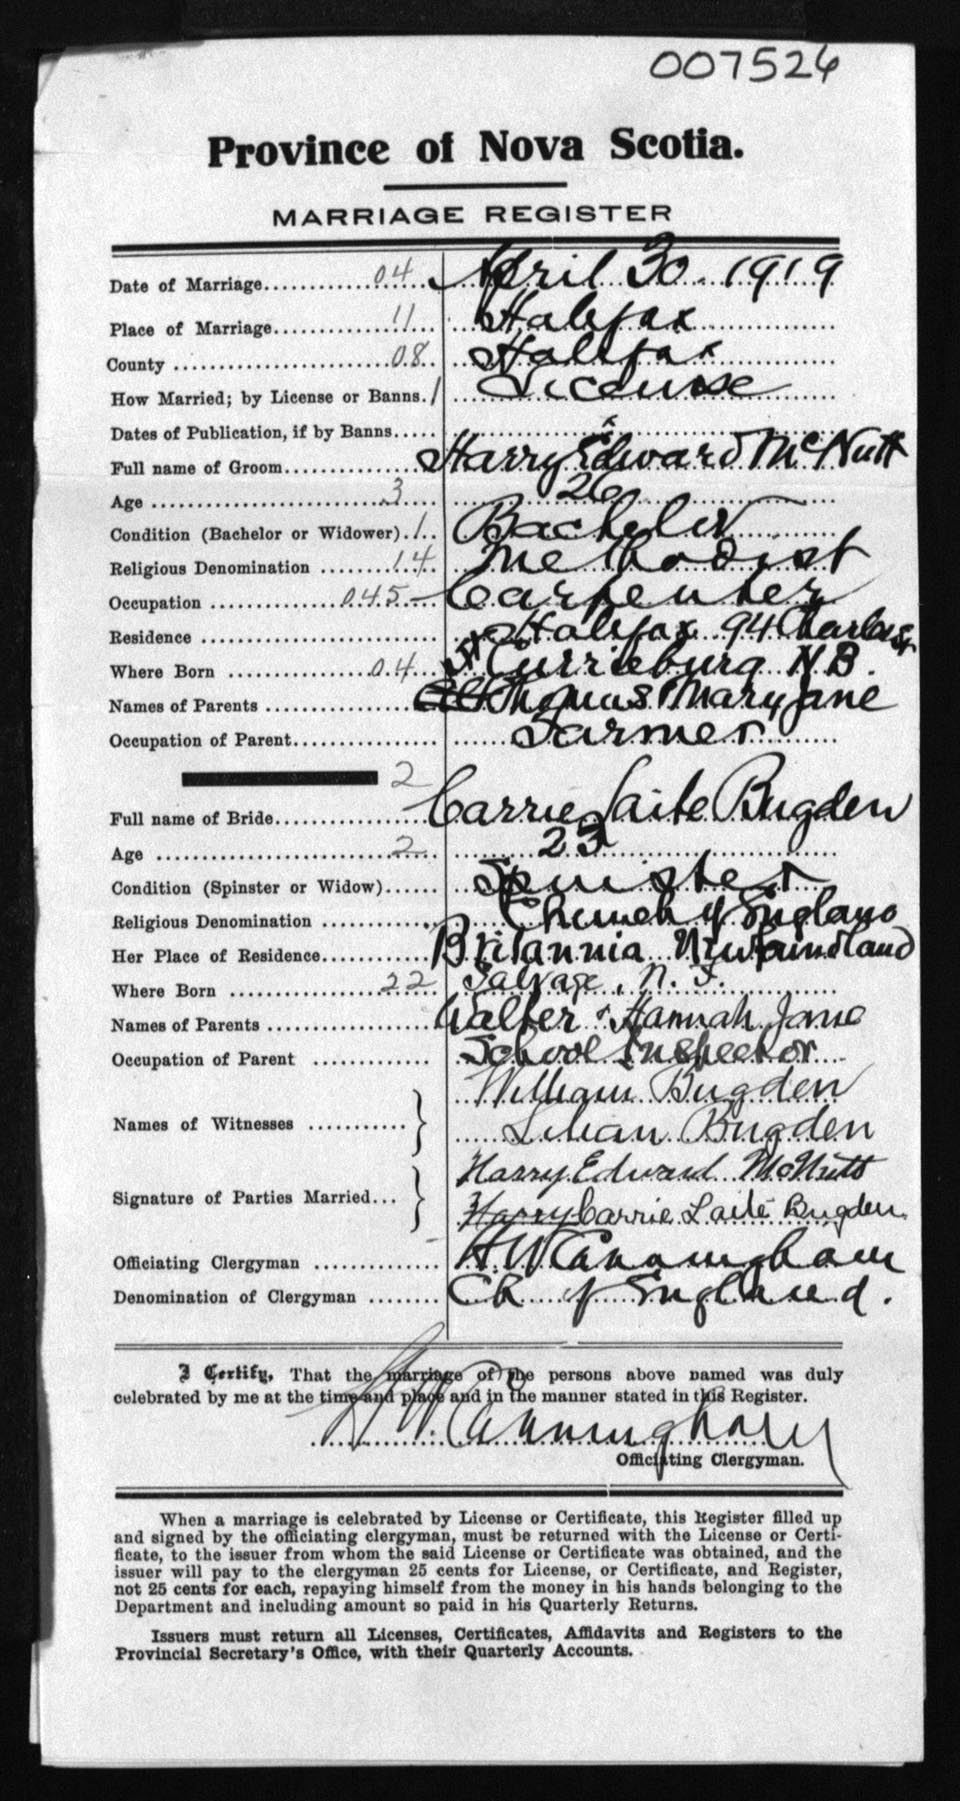 007526
Province of Nova Scotia.
MARRIAGE REGISTER
Date of Marriage 04 April 30. 1919
Place of Marriage 11 Halifax
County 08 Halifax
How Married; by License or Banns. 1 License
Dates of Publication, if by Banns x
Full name of Groom Harry Edward McNutt
Age 3 26
Condition (Bachelor or Widower) 1 Bachelor
Religious Denomination 14 Methodist
Occupation 045 Carpenter
Residence Halifax 94 Charles St
Where Born 04 Currieburg N B.
Names of Parents Thomas Mary Jane
Occupation of Parent Farmer
2
Full name of Bride Carrie Laite Bugden
Age 2 23
Condition (Spinster or Widow) Spinster
Religious Denomination Church of England
Her Place of Residence Britannia Newfoundland
Where Born 22 Salvage, N. F.
Names of Parents Walter & Hannah Jane
Occupation of Parent School Inspector
William Bugden
Names of Witnesses
Lilian Bugden
Harry Edward McNutt
Signature of Parties Married
Harry Carrie Laite Bugden
Officiating Clergyman H W Cunningham
Denomination of Clergyman Ch of England.
I Certify, That the marriage of the persons above named was duly
celebrated by me at the time and place and in the manner stated in this Register.
H W. Cunningham
Officiating Clergyman.
When a marriage is celebrated by License or Certificate, this Register filled up
and signed by the officiating clergyman, must be returned with the License or Certi-
ficate, to the issuer from whom the said License or Certificate was obtained, and the
issuer will pay to the clergyman 25 cents for License, or Certificate, and Register,
not 25 cents for each, repaying himself from the money in his hands belonging to the
Department and including amount so paid in his Quarterly Returns.
Issuers must return all Licenses, Certificates, Affidavits and Registers to the
Provincial Secretary's Office, with their Quarterly Accounts.